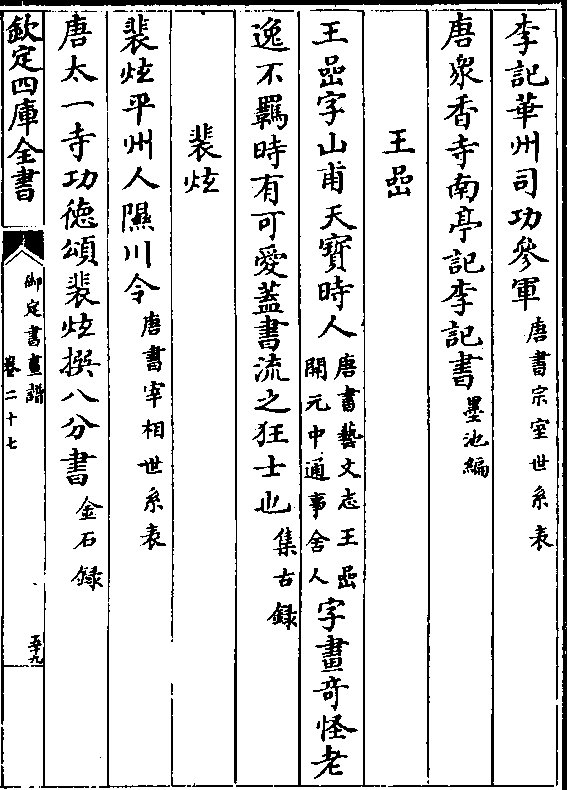 李記華州司功參軍唐書宗室世系表
唐衆香寺南亭記李記書墨池編
王嵒
王嵒字山甫天寶時人唐書藝文志王嵒開元中通事舍人字畫竒怪老
逸不羈時有可愛蓋書流之狂士也集古録
裴炫
裴炫平州人隰川令唐書宰相世系表
唐太一寺功徳頌裴炫撰八分書金石録
欽定四庫全書
御定書畫譜
卷二十七
五十九